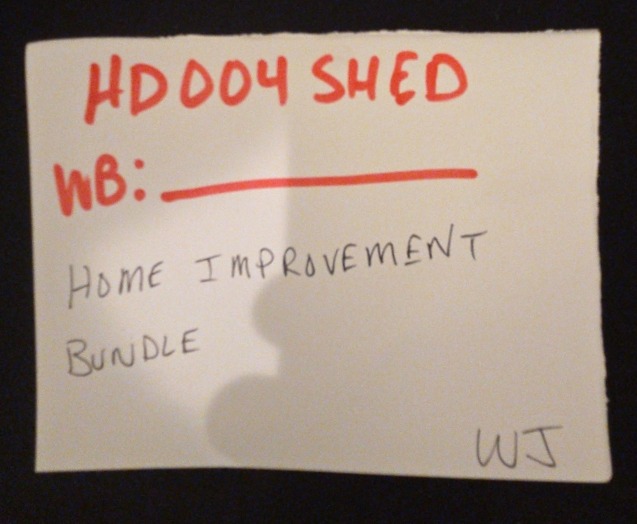 HD004 SHED
WB:
HOME IMPROVEMENT
BUNDLE
WJ